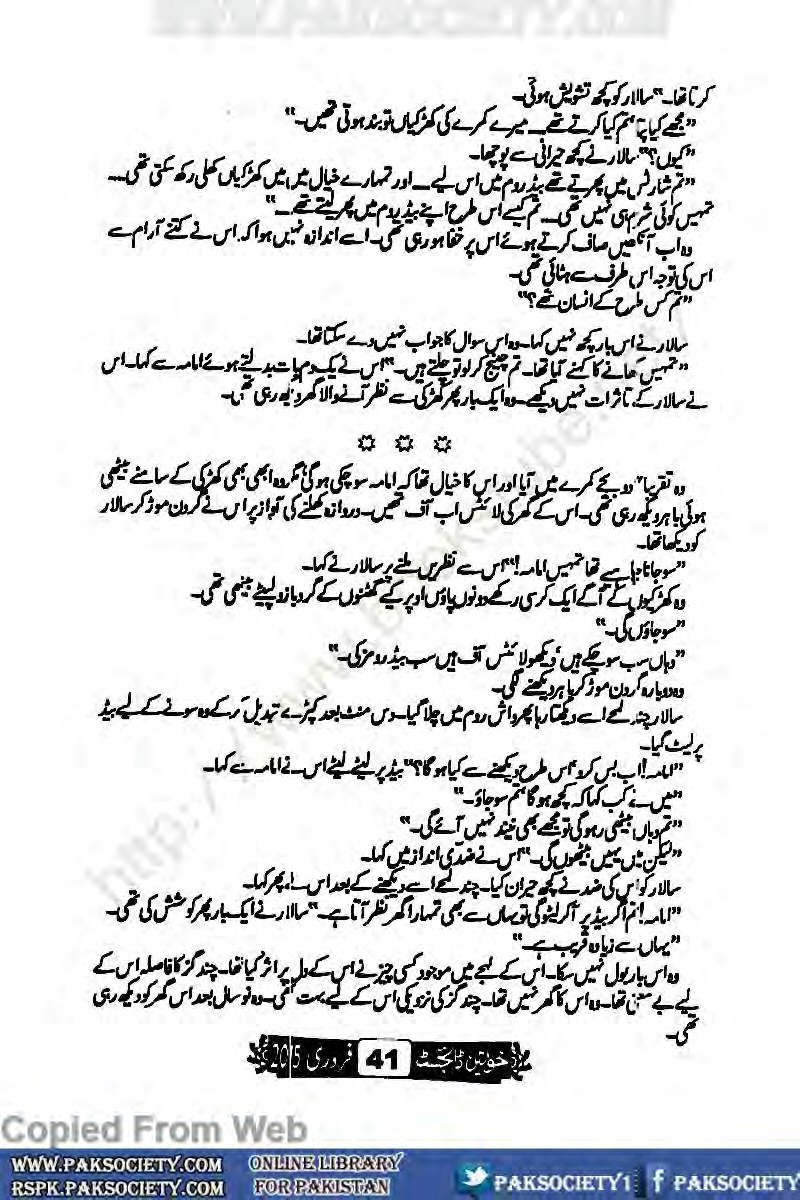 کرتا تھا۔" سالار کو کچھ تشویش ہوئی۔
"مجھے کیا پتا تم کیا کرتے تھے۔ میرے کمرے کی کھڑکیاں تو بند ہوتی تھیں۔"
"کیوں؟" سالار نے کچھ حیرانی سے پوچھا۔
"تم شارٹس میں پھرتے تھے بیڈ روم میں اس لیے۔ اور تمہارے خیال میں میں کھڑکیاں کھلی رکھ سکتی تھی۔۔۔
تمہیں کوئی شرم ہی نہیں تھی۔ تم کیسے اس طرح اپنے بیڈ روم میں پھر لیتے تھے۔"
وہ اب آنکھیں صاف کرتے ہوئے اس پر خفا ہو رہی تھی۔ اسے اندازہ نہیں ہوا کہ اس نے کتنے آرام سے
اس کی توجہ اس طرف سے ہٹائی تھی۔
"تم کس طرح کے انسان تھے؟"
سالار نے اس بار کچھ نہیں کہا۔ وہ اس سوال کا جواب نہیں دے سکتا تھا۔
"تمہیں کھانے کا کہنے آیا تھا۔ تم چینج کر لو تو چلتے ہیں۔" اس نے یک دم بات بدلتے ہوئے امامہ سے کہا۔ اس
نے سالار کے تاثرات نہیں دیکھے۔ وہ ایک بار پھر کھڑکی سے نظر آنے والا گھر دیکھ رہی تھی۔
☼ ☼ ☼
وہ تقریباً دو بجے کمرے میں آیا اور اس کا خیال تھا کہ امامہ سو چکی ہو گی مگر وہ ابھی بھی کھڑکی کے سامنے بیٹھی
ہوئی باہر دیکھ رہی تھی۔ اس کے گھر کی لائٹس اب آف تھیں۔ دروازہ کھلنے کی آواز پر اس نے گردن موڑ کر سالار
کو دیکھا تھا۔
"سو جانا چاہیے تھا تمہیں امامہ!" اس سے نظریں ملنے پر سالار نے کہا۔
وہ کھڑکیوں کے آگے ایک کرسی رکھے دونوں پاؤں اوپر کیے گھٹنوں کے گرد بازو لپیٹے بیٹھی تھی۔
"سو جاؤں گی۔"
"وہاں سب سو چکے ہیں، دیکھو لائٹس آف ہیں سب بیڈ رومز کی۔"
وہ دوبارہ گردن موڑ کر باہر دیکھنے لگی۔
سالار چند لمحے اسے دیکھتا رہا پھر واش روم میں چلا گیا۔ دس منٹ بعد کپڑے تبدیل کر کے وہ سونے کے لیے بیڈ
پر لیٹ گیا۔
"امامہ! اب بس کرو، اس طرح دیکھنے سے کیا ہو گا؟" بیڈ پر لیٹے لیٹے اس نے امامہ سے کہا۔
"میں نے کب کہا کہ کچھ ہو گا، تم سو جاؤ۔"
"تم وہاں بیٹھی رہو گی تو مجھے بھی نیند نہیں آئے گی۔"
"لیکن میں یہیں بیٹھوں گی۔" اس نے ضدی انداز میں کہا۔
سالار کو اس کی ضد نے کچھ حیران کیا۔ چند لمحے اسے دیکھنے کے بعد اس نے پھر کہا۔
"امامہ! تم اگر بیڈ پر آکر لیٹو گی تو یہاں سے بھی تمہارا گھر نظر آتا ہے۔" سالار نے ایک بار پھر کوشش کی تھی۔
"یہاں سے زیادہ قریب ہے۔"
وہ اس بار بول نہیں سکا۔ اس کے لہجے میں موجود کسی چیز نے اس کے دل پر اثر کیا تھا۔ چند گز کا فاصلہ اس کے
لیے بے معنی تھا۔ وہ اس کا گھر نہیں تھا۔ چند گز کی نزدیکی اس کے لیے بہت تھی۔ وہ نو سال بعد اس گھر کو دیکھ رہی
تھی۔
خواتین ڈائجسٹ 41 فروری 2015
Copied From Web
WWW.PAKSOCIETY.COM ONLINE LIBRARY PAKSOCIETY1 PAKSOCIETY
RSPK.PAKSOCIETY.COM FOR PAKISTAN